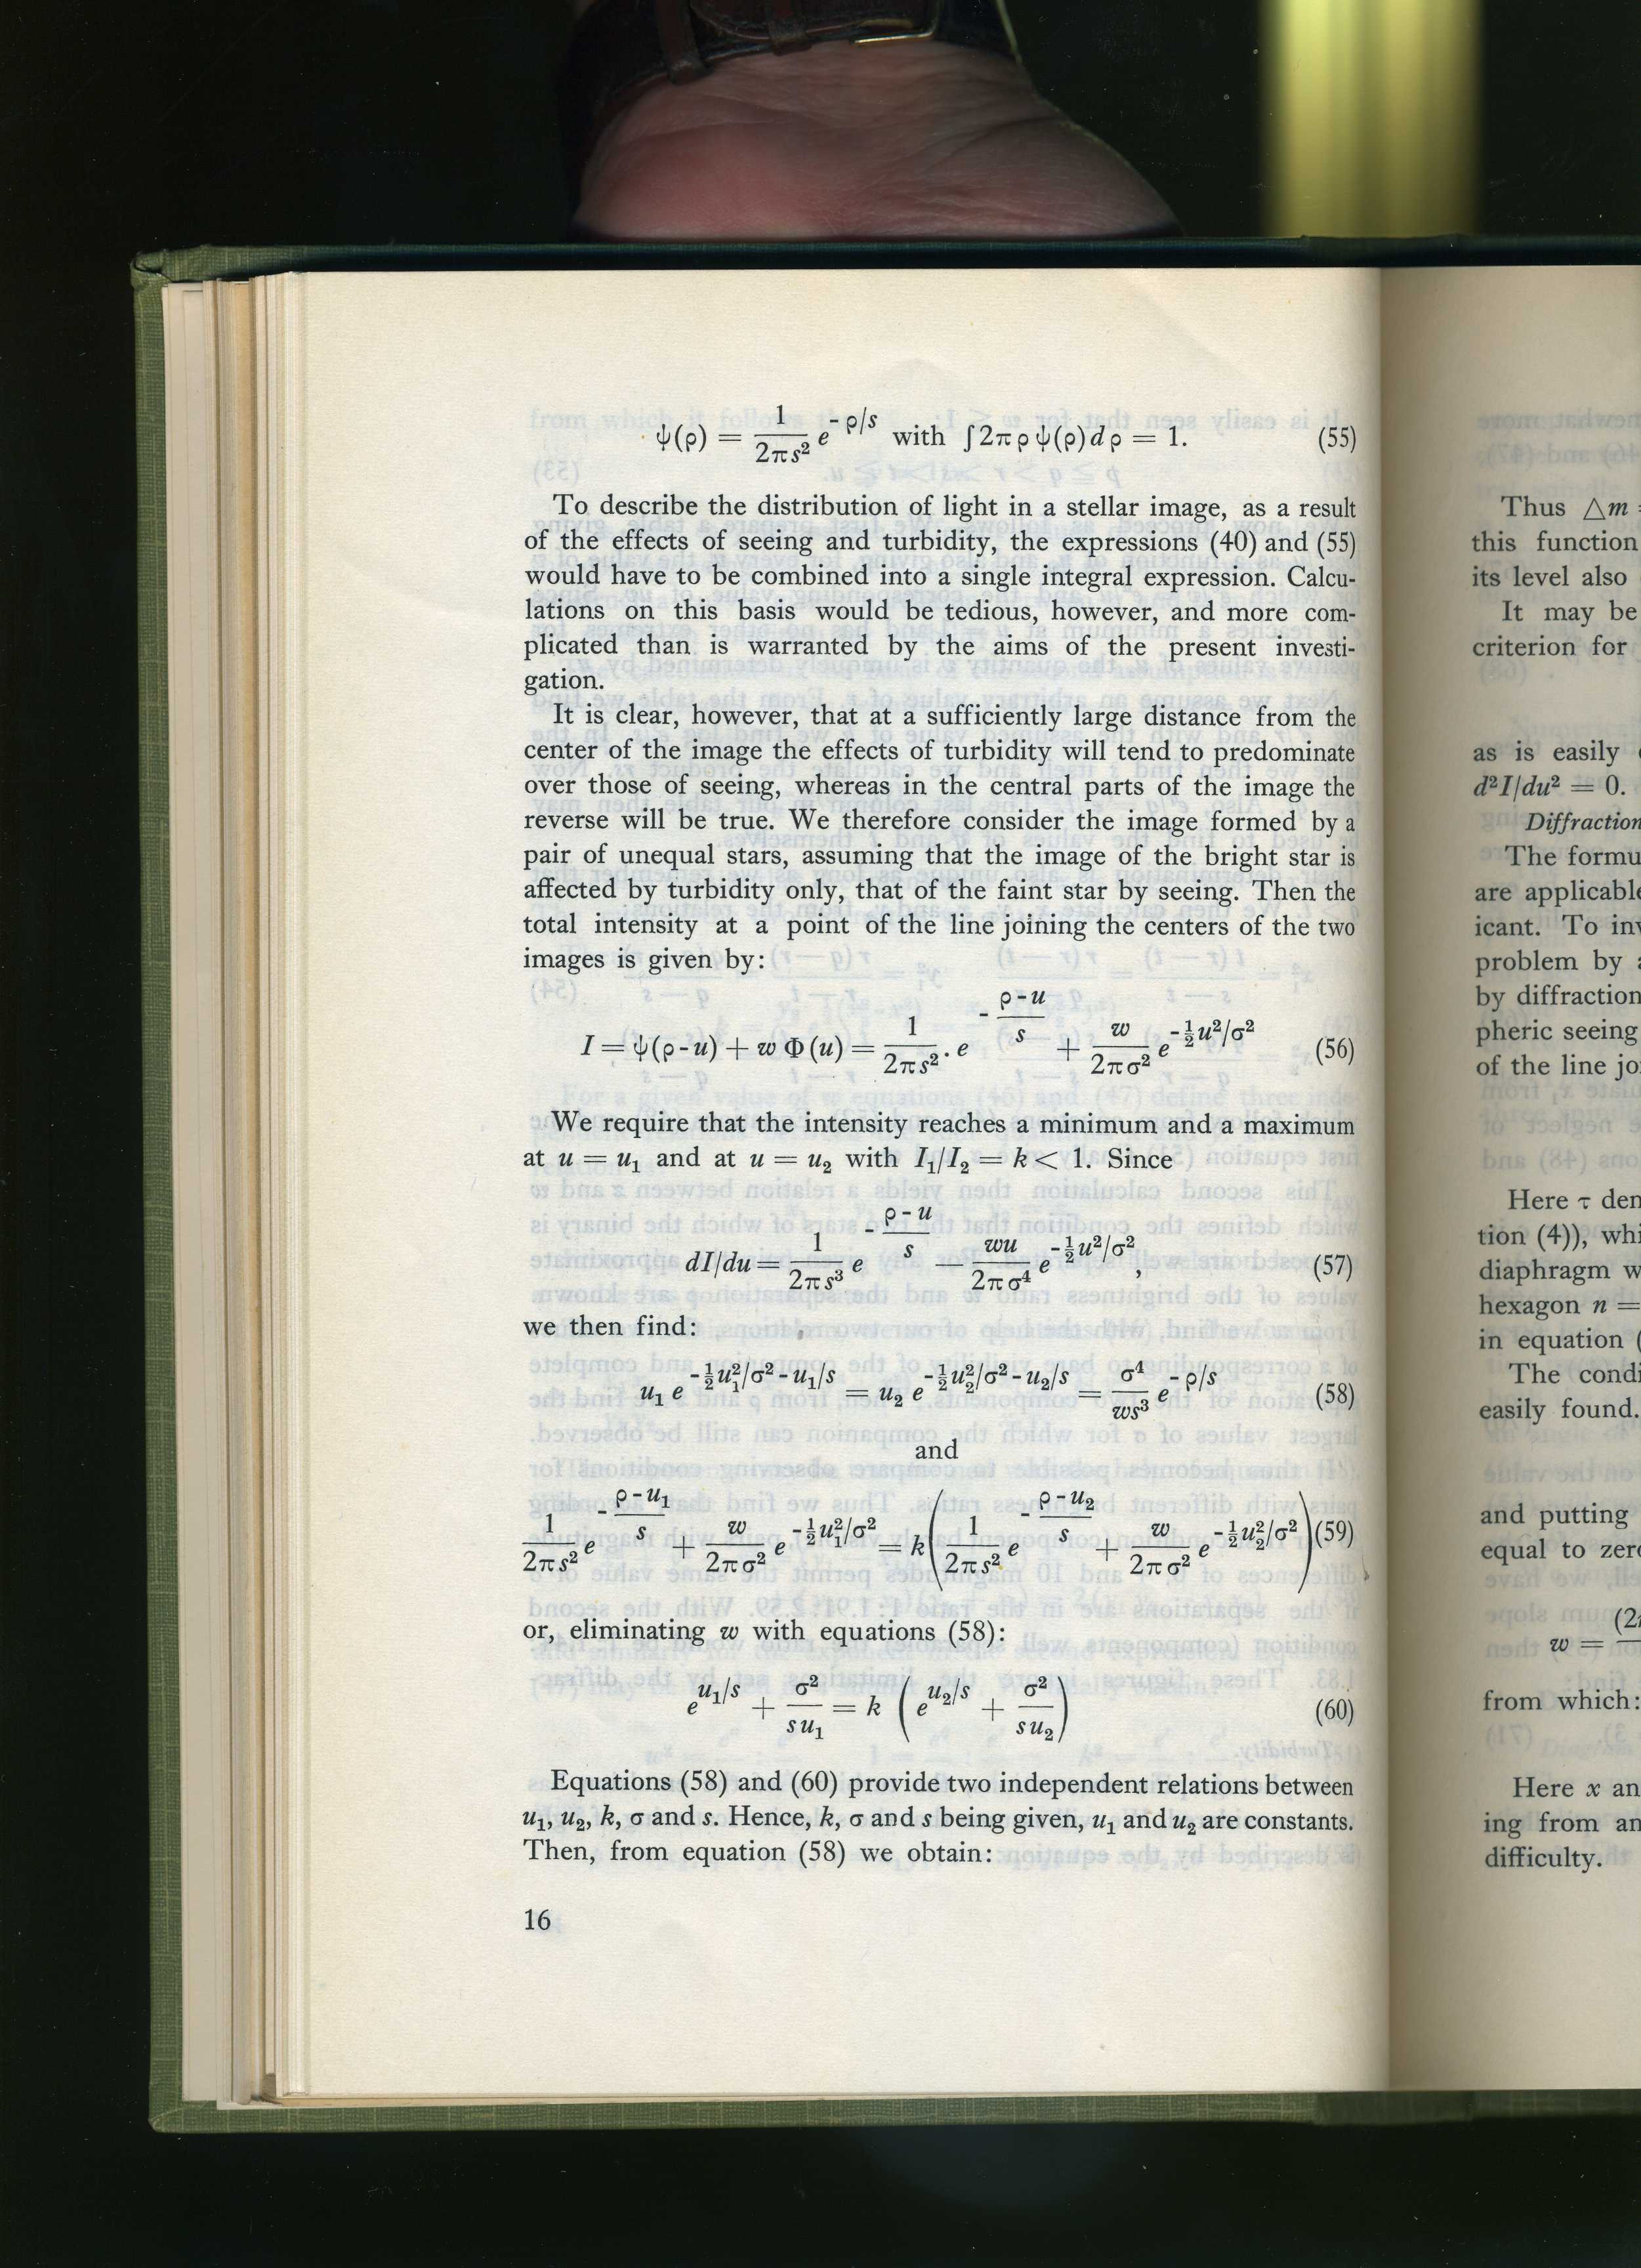 ψ(ρ) = 1/(2πs²) e^(-ρ/s) with ∫2πρψ(ρ)dρ = 1. (55)
To describe the distribution of light in a stellar image, as a result
of the effects of seeing and turbidity, the expressions (40) and (55)
would have to be combined into a single integral expression. Calcu-
lations on this basis would be tedious, however, and more com-
plicated than is warranted by the aims of the present investi-
gation.
It is clear, however, that at a sufficiently large distance from the
center of the image the effects of turbidity will tend to predominate
over those of seeing, whereas in the central parts of the image the
reverse will be true. We therefore consider the image formed by a
pair of unequal stars, assuming that the image of the bright star is
affected by turbidity only, that of the faint star by seeing. Then the
total intensity at a point of the line joining the centers of the two
images is given by:
I = ψ(ρ-u) + w Φ(u) = 1/(2πs²) . e^(-(ρ-u)/s) + w/(2πσ²) e^(-½u²/σ²) (56)
We require that the intensity reaches a minimum and a maximum
at u = u₁ and at u = u₂ with I₁/I₂ = k < 1. Since
dI/du = 1/(2πs³) e^(-(ρ-u)/s) — wu/(2πσ⁴) e^(-½u²/σ²), (57)
we then find:
u₁ e^(-½u₁²/σ²-u₁/s) = u₂ e^(-½u₂²/σ²-u₂/s) = σ⁴/(ws³) e^(-ρ/s) (58)
and
1/(2πs²) e^(-(ρ-u₁)/s) + w/(2πσ²) e^(-½u₁²/σ²) = k(1/(2πs²) e^(-(ρ-u₂)/s) + w/(2πσ²) e^(-½u₂²/σ²)) (59)
or, eliminating w with equations (58):
e^(u₁/s) + σ²/(su₁) = k (e^(u₂/s) + σ²/(su₂)) (60)
Equations (58) and (60) provide two independent relations between
u₁, u₂, k, σ and s. Hence, k, σ and s being given, u₁ and u₂ are constants.
Then, from equation (58) we obtain:
16
Thus △m =
this function
its level also
It may be
criterion for
as is easily
d²I/du² = 0.
Diffraction
The formu
are applicable
icant. To inv
problem by a
by diffraction
pheric seeing
of the line jo
Here τ den
tion (4)), whi
diaphragm w
hexagon n =
in equation (
The condi
easily found.
and putting
equal to zero
w = (2
from which:
Here x an
ing from an
difficulty.